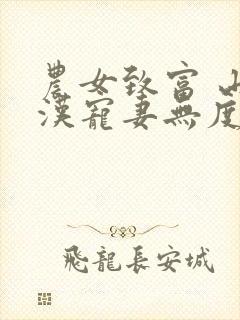 農女致富 山
漢寵妻無度
飛龍長安城